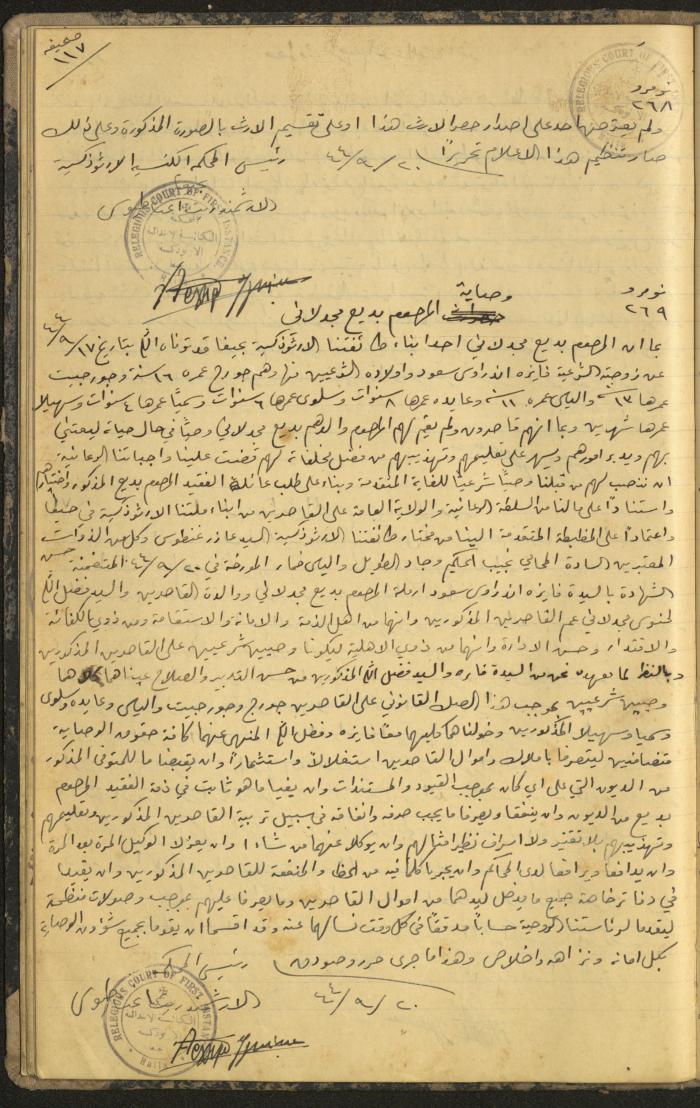 صحيفه
١١٧
نومرو
٢٦٨
ولم يعترضها احد على اصدار حصر الارث هذا او على تقسيم الارث بالصورة المذكورة وعلى ذلك
صار تنظيم هذا الاعلام تحريراً ٢٠/٩/٤٤ رئيس المحكمة الكنسية الارثوذكسية
RELEGIOUS COURT OF FIRST INSTANCE
نومرو
٢٦٩
وصاية
المرحوم بديع مجدلاني
بما ان المرحوم بديع مجدلاني احد ابناء طائفتنا الارثوذكسية بحيفا قد توفاه الله بتاريخ ١٧/٩/٤٤
عن زوجته الشرعية فايزه اندراوس سعود واولاده الشرعيين منها وهم جورج عمره ١٦ سنة وجورجيت
عمرها ١٣ والياس عمره ١١ وعايده عمرها ٨ سنوات وسلوى عمرها ٦ سنوات وسميا عمرها ٤ سنوات وسهيلا
عمرها شهرين وبما انهم قاصرون ولم يقم لهم المرحوم والدهم بديع مجدلاني وصياً في حال حياته ليعتني
بهم ويدير امورهم ويسهر على تعليمهم وتهذيبهم من فضل مخلفاته لهم قضت علينا واجباتنا الرعائية
ان ننصب لهم من قبلنا وصياً شرعياً للغاية المتقدمة وبناء على طلب عائلة الفقيد المرحوم بديع المذكور واختيارهم
واستناداً على مالنا من السلطة الرعائية والولاية العامة على القاصرين من ابناء ملتنا الارثوذكسية في حيفا
واعتماداً على المظبطة المتقدمة الينا من مختار طائفتنا الارثوذكسية السيد عازر غنطوس وكل من الذوات
المعتبرين السادة المحامي نجيب الحكيم وجاد الطويل والياس خمار المورخة في ٢٠/٩/٤٤ المتضمنة حسن
الشهادة بالسيدة فايزه اندراوس سعود ارملة المرحوم بديع مجدلاني ووالدة القاصرين والسيد فضل الله
مجدلاني عم القاصرين المذكورين وانهما من اهل الذمة والامانة والاستقامة ومن ذوي الكفائة
والاقتدار وحسن الادارة وانهما من ذوي الاهلية ليكونا وصيين شرعيين على القاصرين المذكورين
وبالنظر لما نعهده نحن من السيدة فايزه والسيد فضل الله المذكورين من حسن التدبير والصلاح عيناهما
وصيين شرعيين بموجب هذا الصك القانوني على القاصرين جورج وجورجيت والياس وعايده وسلوى
وسميا وسهيلا المذكورين وخولناهما كليهما معاً فايزه وفضل الله المنوه عنهما كافة حقوق الوصاية
متضامنين ليتصرفا باملاك واموال القاصرين استغلالاً واستثماراً وان يقبضا ما للمتوفى المذكور
من الديون التي على اي كان بموجب القيود والمستندات وان يفيا ما هو ثابت في ذمة الفقيد المرحوم
بديع من الديون وان ينفقا ويصرفا ما يجب صرفه وانفاقه في سبيل تربية القاصرين المذكورين وتعليمهم
وتهذيبهم بلا تقتير ولا اسراف نظير امثالهم وان يوكلا عنهما من شاءا وان يعزلا الوكيل المرة بعد المرة
وان يدافعا ويرافعا لدى المحاكم وان يجريا كلما فيه من الحظ والمنفعة للقاصرين المذكورين وان يقيدا
في دفاتر خاصة جميع ما يدخل ليدهما من اموال القاصرين وما يصرفا عليهم بموجب وصولات منظمة
ليقدما لرئاستنا الروحية حساباً مدققاً في كل وقت نسألهما عنه وقد اقسما ان يقوما بجميع شؤون الوصاية
بكل امانة ونزاهه واخلاص وهذا ما جرى حرر وصودق رئيس المحكمة
٢٠/٩/٤٤
RELEGIOUS COURT OF FIRST INSTANCE